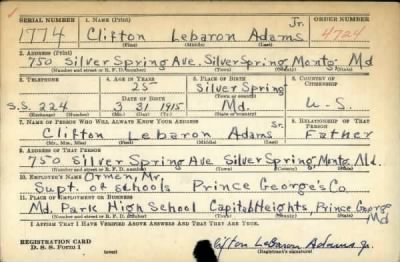 SERIAL NUMBER 1. NAME (Print) ORDER NUMBER
1774 Clifton Lebaron Adams Jr. 4724
(First) (Middle) (Last)
2. ADDRESS (Print)
750 Silver Spring Ave. Silver Spring, Montg. Md
(Number and street or R. F. D. number) (Town) (County) (State)
3. TELEPHONE 4. AGE IN YEARS 5. PLACE OF BIRTH 6. COUNTRY OF CITIZENSHIP
25 Silver Spring
(Town or county)
DATE OF BIRTH
S.S. 224 3 31 1915 Md. U-S.
(Exchange) (Number) (Mo.) (Day) (Yr.) (State or country)
7. NAME OF PERSON WHO WILL ALWAYS KNOW YOUR ADDRESS 8. RELATIONSHIP OF THAT PERSON
Clifton Lebaron Adams Sr. Father
(Mr., Mrs., Miss) (First) (Middle) (Last)
9. ADDRESS OF THAT PERSON
750 Silver Spring Ave Silver Spring, Montg. Md.
(Number and street or R. F. D. number) (Town) (County) (State)
10. EMPLOYER'S NAME Ormen, Mr.
Supt. of schools Prince George's Co.
11. PLACE OF EMPLOYMENT OR BUSINESS
Md. Park High School Capitol Heights, Prince George Md
(Number and street or R. F. D. number) (Town) (County) (State)
I AFFIRM THAT I HAVE VERIFIED ABOVE ANSWERS AND THAT THEY ARE TRUE.
REGISTRATION CARD
D. S. S. FORM 1 Clifton LeBaron Adams Jr.
(Registrant's signature)